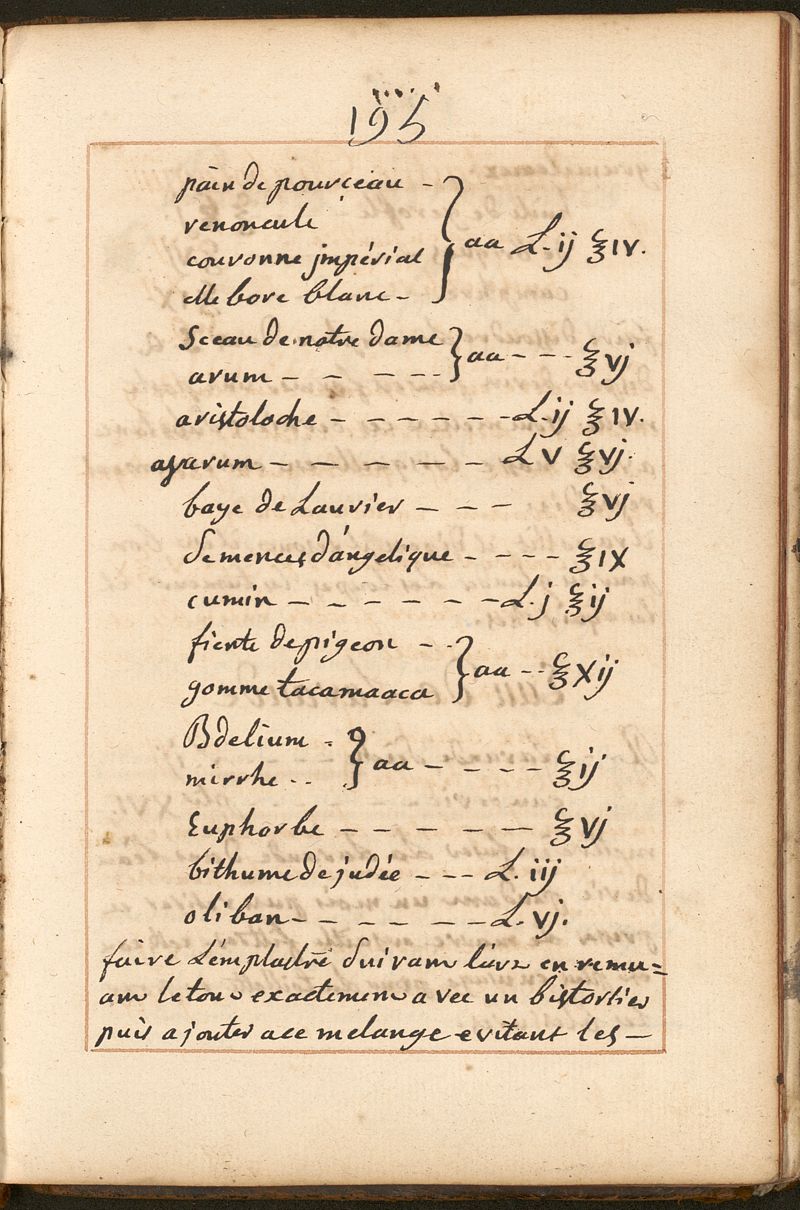 195
pain de pourceau -
renoncule
couronne jmpérial
ellebore blanc - } aa L. ij ℥ IV.
Sceau de notre dame
arum - - - - - } aa - - - ℥ vj
aristoloche - - - - - - L. ij ℥ IV.
asarum - - - - - - L V ℥ vj.
baye de Laurier - - - ℥ vj
Semences d'angelique - - - - ℥ IX
cumin - - - - - - L. j ℥ ij
fiente de pigeon - -
gomme tacamaaca } aa - - ℥ Xij
Bdelium -
mirrhe - - } aa - - - - ℥ ij
Euphorbe - - - - - ℥ vj
bithume de judée - - - L. iij
oliban - - - - - - L. vj.
faire L'emplastre suivant l'art en remu=
ant le tout exactement avec un bistortier
puis ajouter a ce melange evitant les -